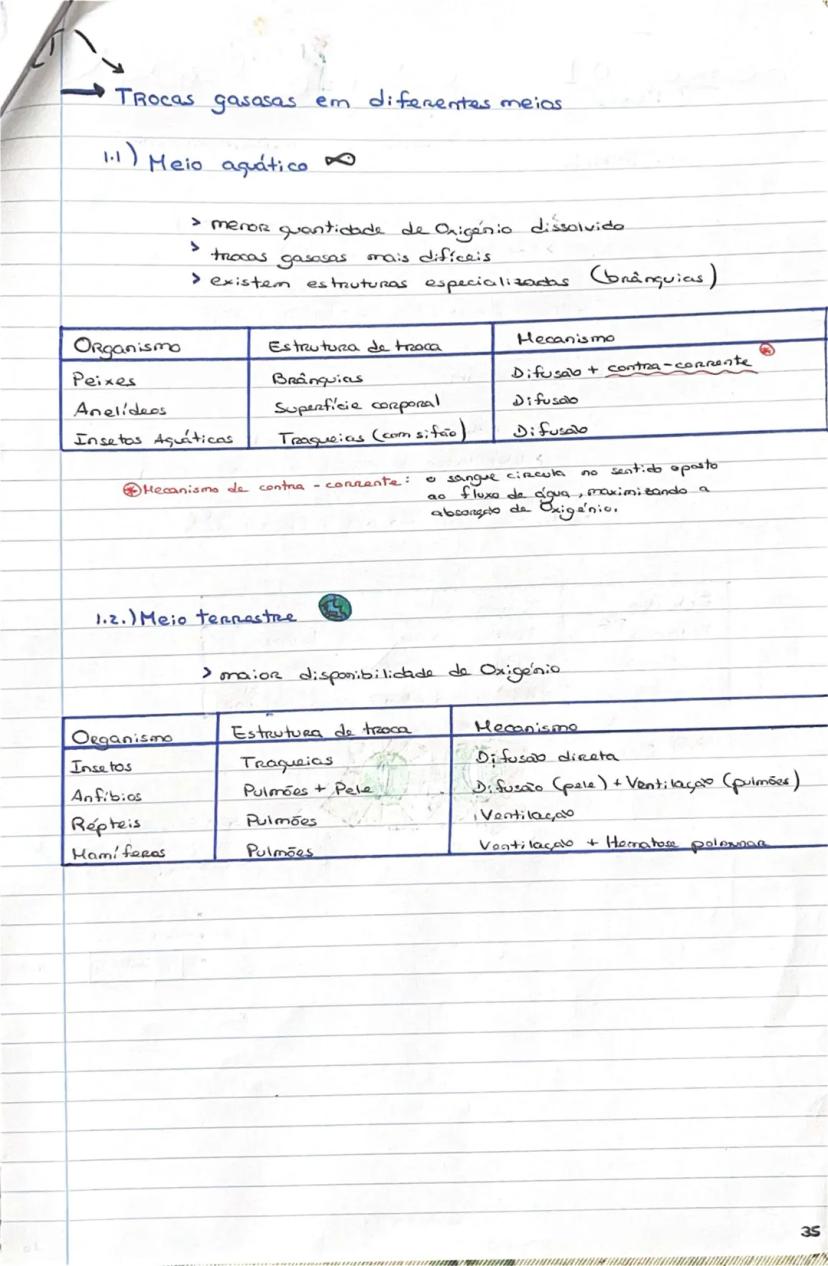 → Trocas gasosas em diferentes meios
1.1) Meio aquático
> menor quantidade de Oxigénio dissolvido
> trocas gasosas mais difíceis
> existem estruturas especializadas (brânquias)
Organismo Estrutura de troca Mecanismo
Peixes Brânquias Difusão + contra-corrente *
Anelídeos Superfície corporal Difusão
Insetos Aquáticos Traqueias (com sifão) Difusão
* Mecanismo de contra-corrente: o sangue circula no sentido oposto
ao fluxo de água, maximizando a
absorção de Oxigénio.
1.2.) Meio terrestre
> maior disponibilidade de Oxigénio
Organismo Estrutura de troca Mecanismo
Insetos Traqueias Difusão direta
Anfíbios Pulmões + Pele Difusão (pele) + Ventilação (pulmões)
Répteis Pulmões Ventilação
Mamíferos Pulmões Ventilação + Hematose polmonar
35